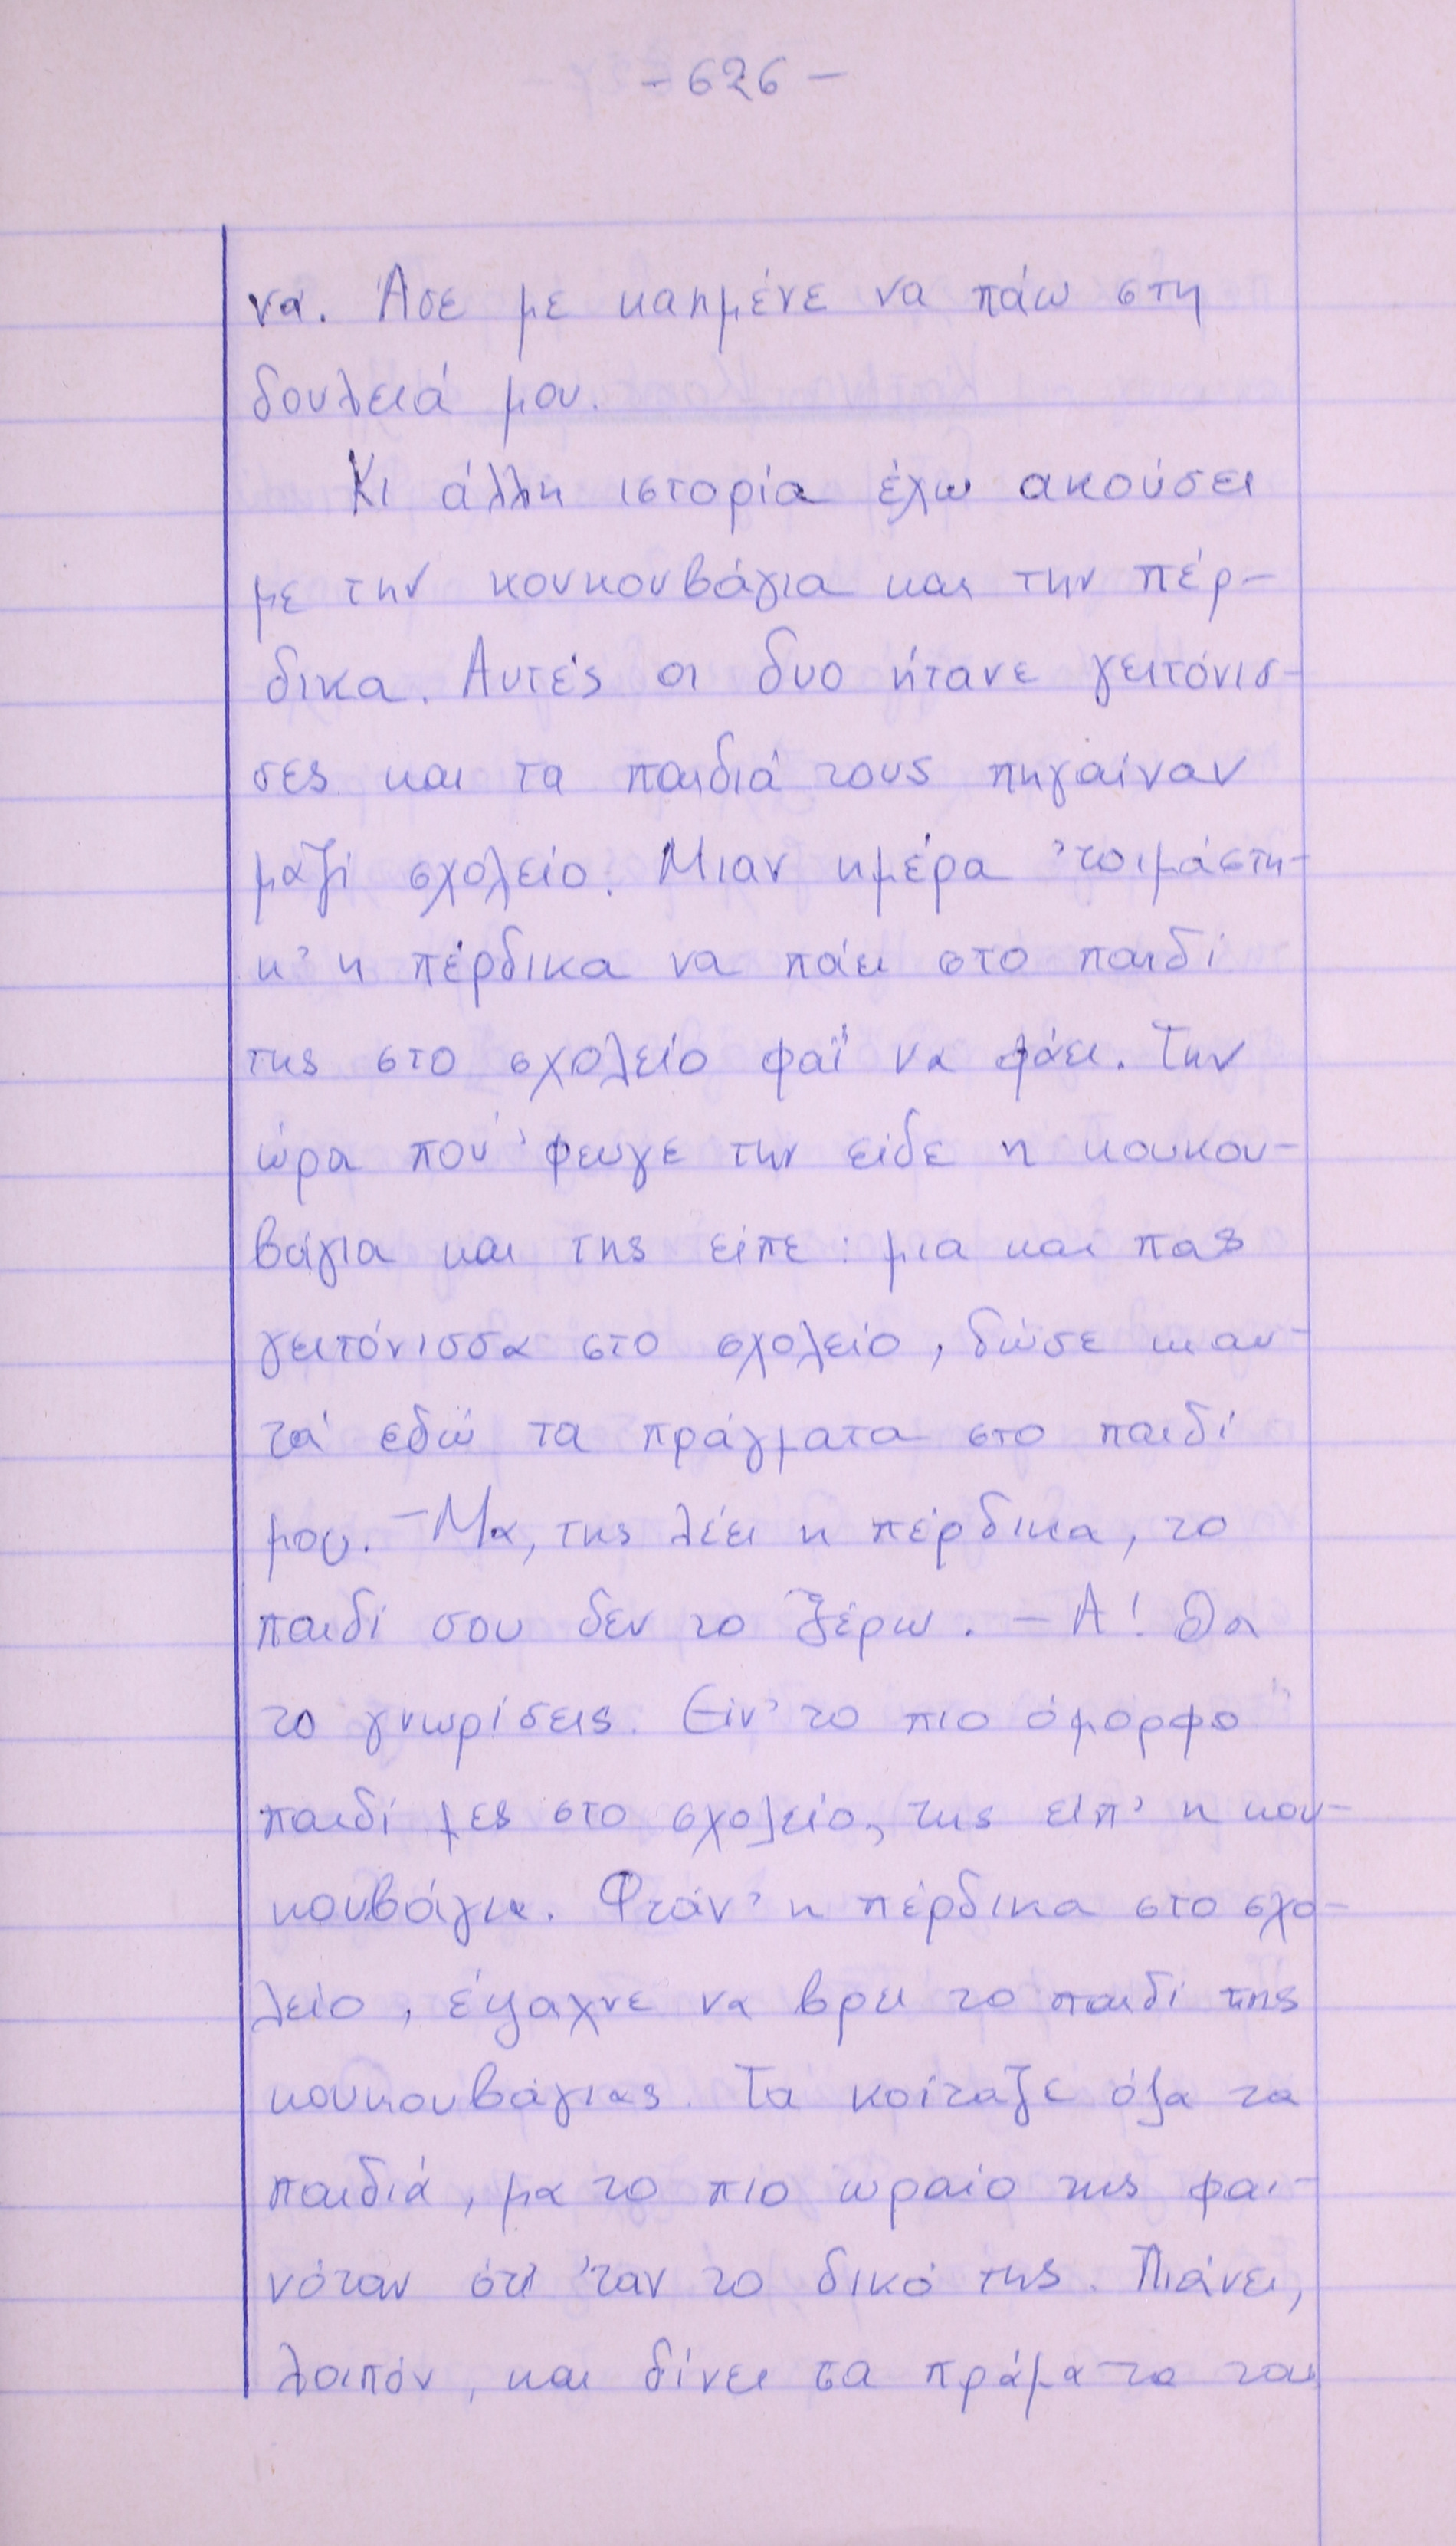 - 626 -
να. Άσε με καημένε να πάω στη
δουλειά μου.
Κι άλλη ιστορία έχω ακούσει
με την κουκουβάγια και την πέρ-
δικα. Αυτές οι δυο ήτανε γειτόνισ-
σες και τα παιδιά τους πηγαίναν
μαζί σχολείο. Μιαν ημέρα 'τοιμάστη-
κ' η πέρδικα να πάει στο παιδί
της στο σχολείο φαΐ να φάει. Την
ώρα πού 'φευγε την είδε η κουκου-
βάγια και της είπε: μια και πας
γειτόνισσα στο σχολείο, δώσε κι αυ-
τά εδώ τα πράγματα στο παιδί
μου. - Μα, της λέει η πέρδικα, το
παιδί σου δεν το ξέρω. - Α! Θα
το γνωρίσεις. Είν' το πιο όμορφο
παιδί μες στο σχολείο, της είπ' η κου-
κουβάγια. Φτάν' η πέρδικα στο σχο-
λείο, έψαχνε να βρει το παιδί της
κουκουβάγιας. Τα κοίταζε όλα τα
παιδιά, μα το πιο ωραίο της φαι-
νόταν ότι 'ταν το δικό της. Πιάνει,
λοιπόν, και δίνει τα πράματα του